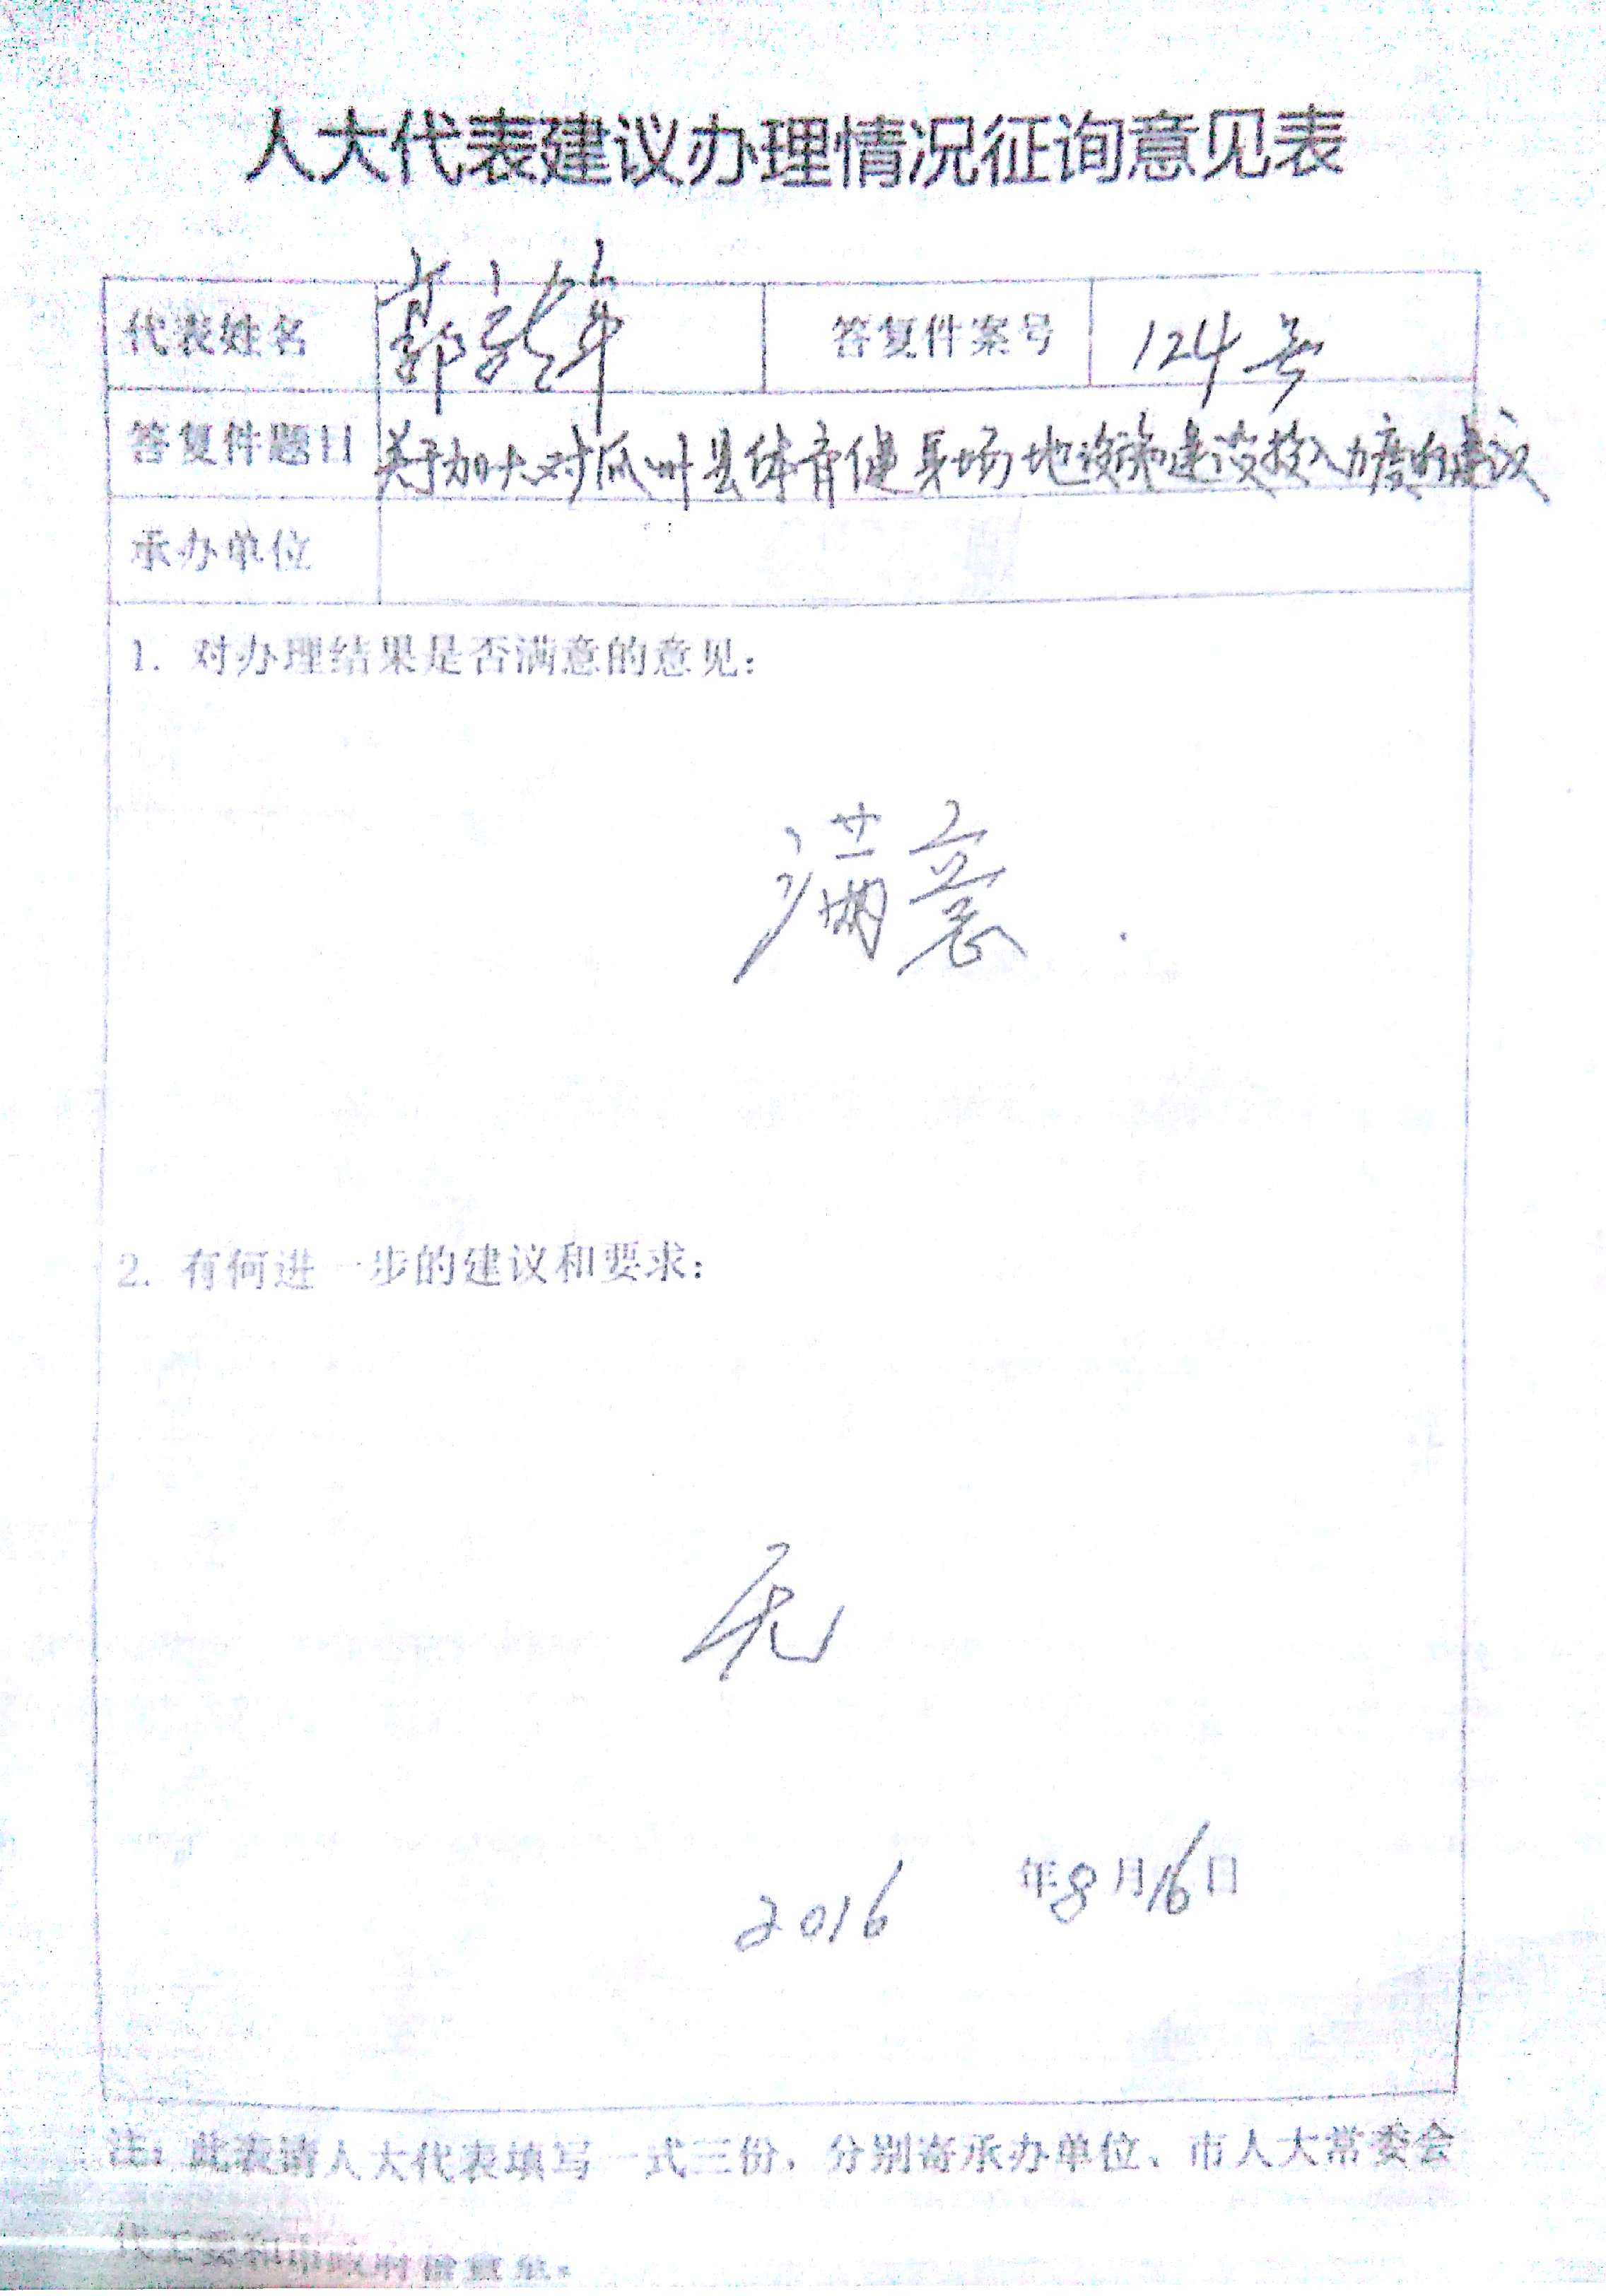 人大代表建议办理情况征询意见表
代表姓名 郭 答复件案号 124号
答复件题目 关于加大对瓜州县体育健身场地设施建设投入力度的建议
承办单位
1. 对办理结果是否满意的意见：
满意
2. 有何进一步的建议和要求：
无
2016 年8月16日
注：此表请人大代表填写一式三份，分别寄承办单位、市人大常委会
代工委和市政府督查室。